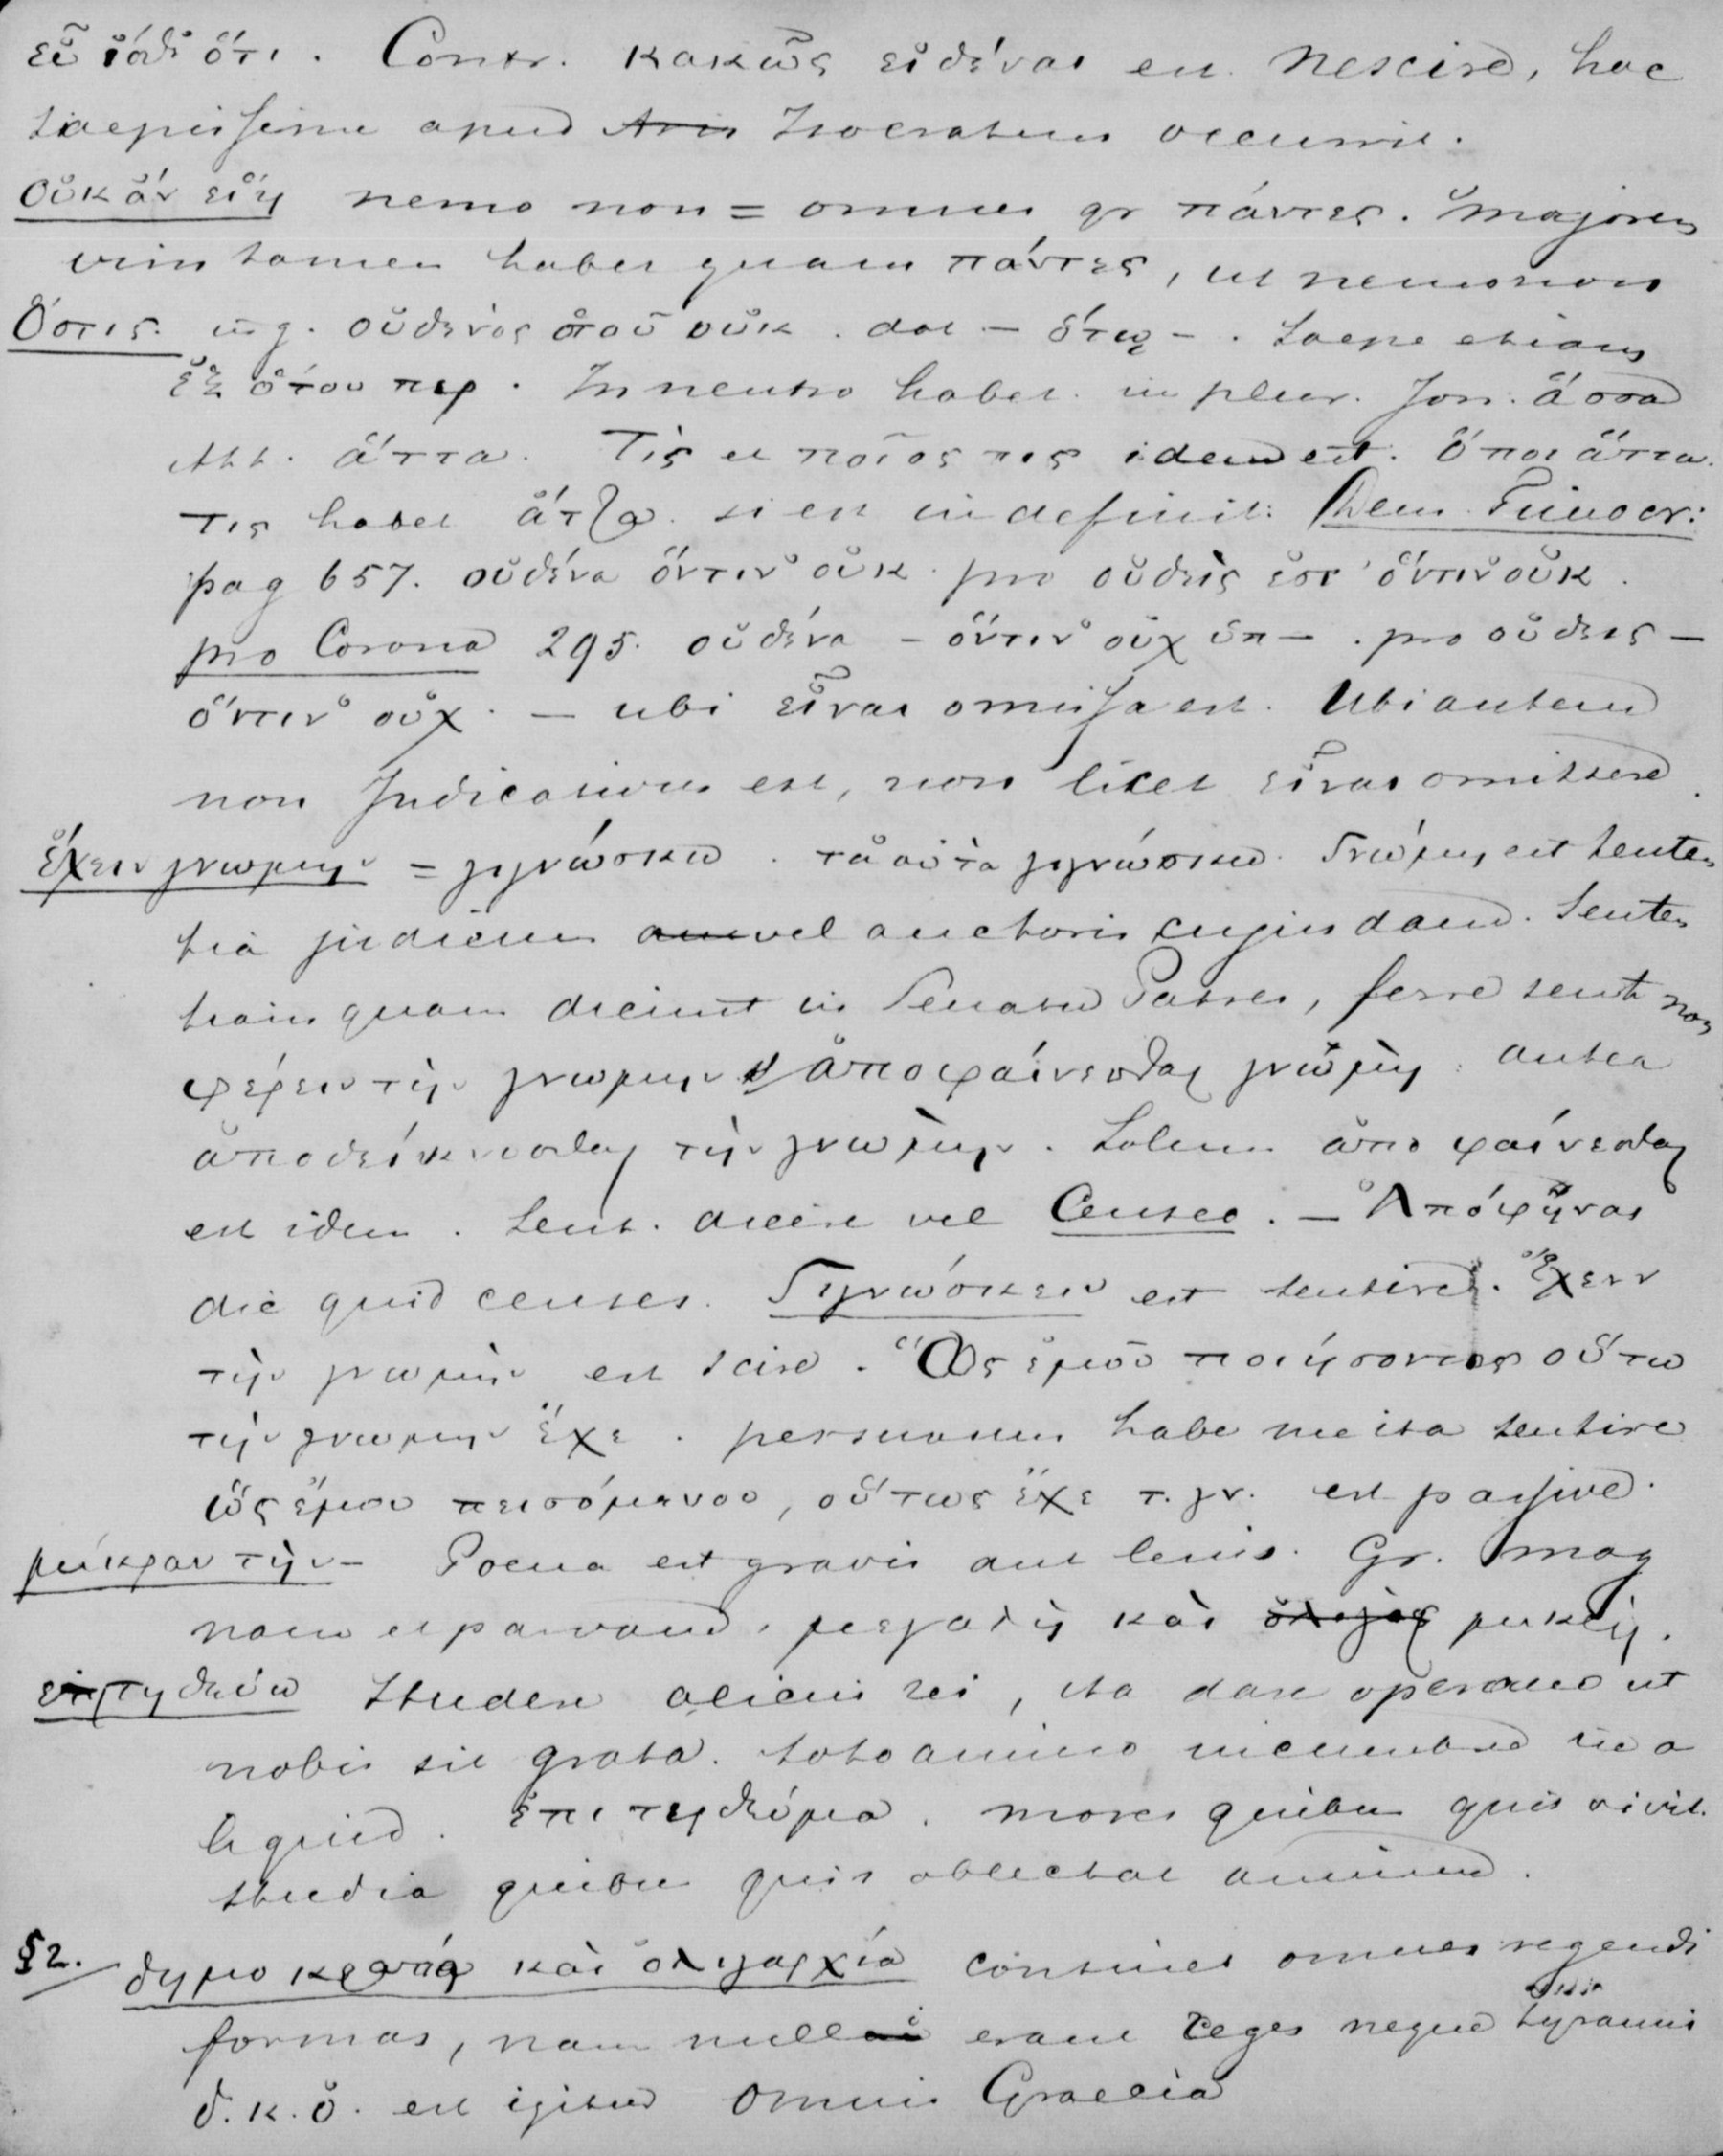 εὖ ἴσθι ὅτι. Contr. κακῶς εἰδέναι est nescire, hoc
saepissime apud Isocratem occurrit.
οὐκ ἂν εἴη nemo non = omnes gr πάντες. Majorem
vim tamen habet quam πάντες, ut nemo non
Ὅστις. οὐδενὸς ὅτου οὐκ. dat – ὅτῳ –. Saepe etiam
ἐξ ὅτου περ. In neutro habet in plur. Jon. ἅσσα
Att. ἅττα. Τίς et ποῖός τις idem est. ὁποῖ ἅττα.
τις habet ἄττα si est indefinit: Dem Timocr:
pag 657. οὐδένα ὅντιν' οὐκ pro οὐδείς ἐστ' ὅντιν' οὐκ.
pro Corona 295. οὐδένα – ὅντιν' οὐχ ὑπ–. pro οὐδεις –
ὅντιν' οὐχ – ubi εἶναι omissa est. Ubi autem
non Indicativus est, non licet εἶναι omittere.
ἔχειν γνωμην = γιγνώσκω. ταὐτὰ γιγνώσκω. Γνώμη est senten
tia judicum vel auctoris cujusdam. Senten
tiam quam dicunt in Senatu Patres, ferre sent non
φέρειν τὴν γνωμην ἀποφαίνεσθαι γνώμην. antea
ἀποδείκνυσθαι τὴν γνωμην. Solum ἀποφαίνεσθαι
est idem. Sent. dicere vel Censeo. – Ἀπόφῃναι
dic quid censes. Γιγνώσκειν est sentire. Ἔχειν
τὴν γνωμὴν est scire. Ὡς ἐμοῦ ποιήσοντος οὕτω
τὴν γνωμην ἔχε. persuasum habe me ita sentire
ὡς ἐμου πεισόμενου, οὕτως ἔχε τ. γν. est passive.
μίκραν τὴν – Poena est gravis aut lenis. Gr. mag
nam et parvam, μεγαλὴ καὶ μικρή.
ἐπιτηδεύω Studere alicui rei, ita dare operam ut
nobis sit grata. toto animo incumbere in a
liquid. ἐπιτηδεύμα. mores quibus quis vivit.
studia quibus quis oblectat animum.
§2. δημοκρατία καὶ ὀλιγαρχία continet omnes regendi
formas, nam nulli erant reges neque tyrannis
δ. κ. ὀ. est igitur omnis Graecia